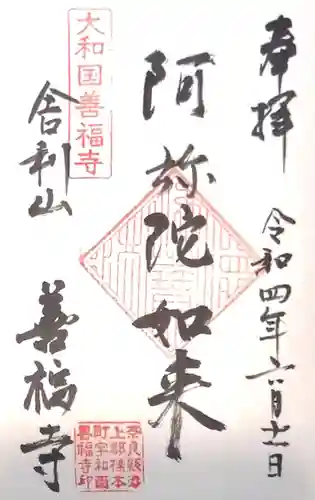 奉拝
令和四年六月十一日
阿弥陀如来
大和国善福寺
舎利山
善福寺
奈良縣山
町字和田
善福寺印